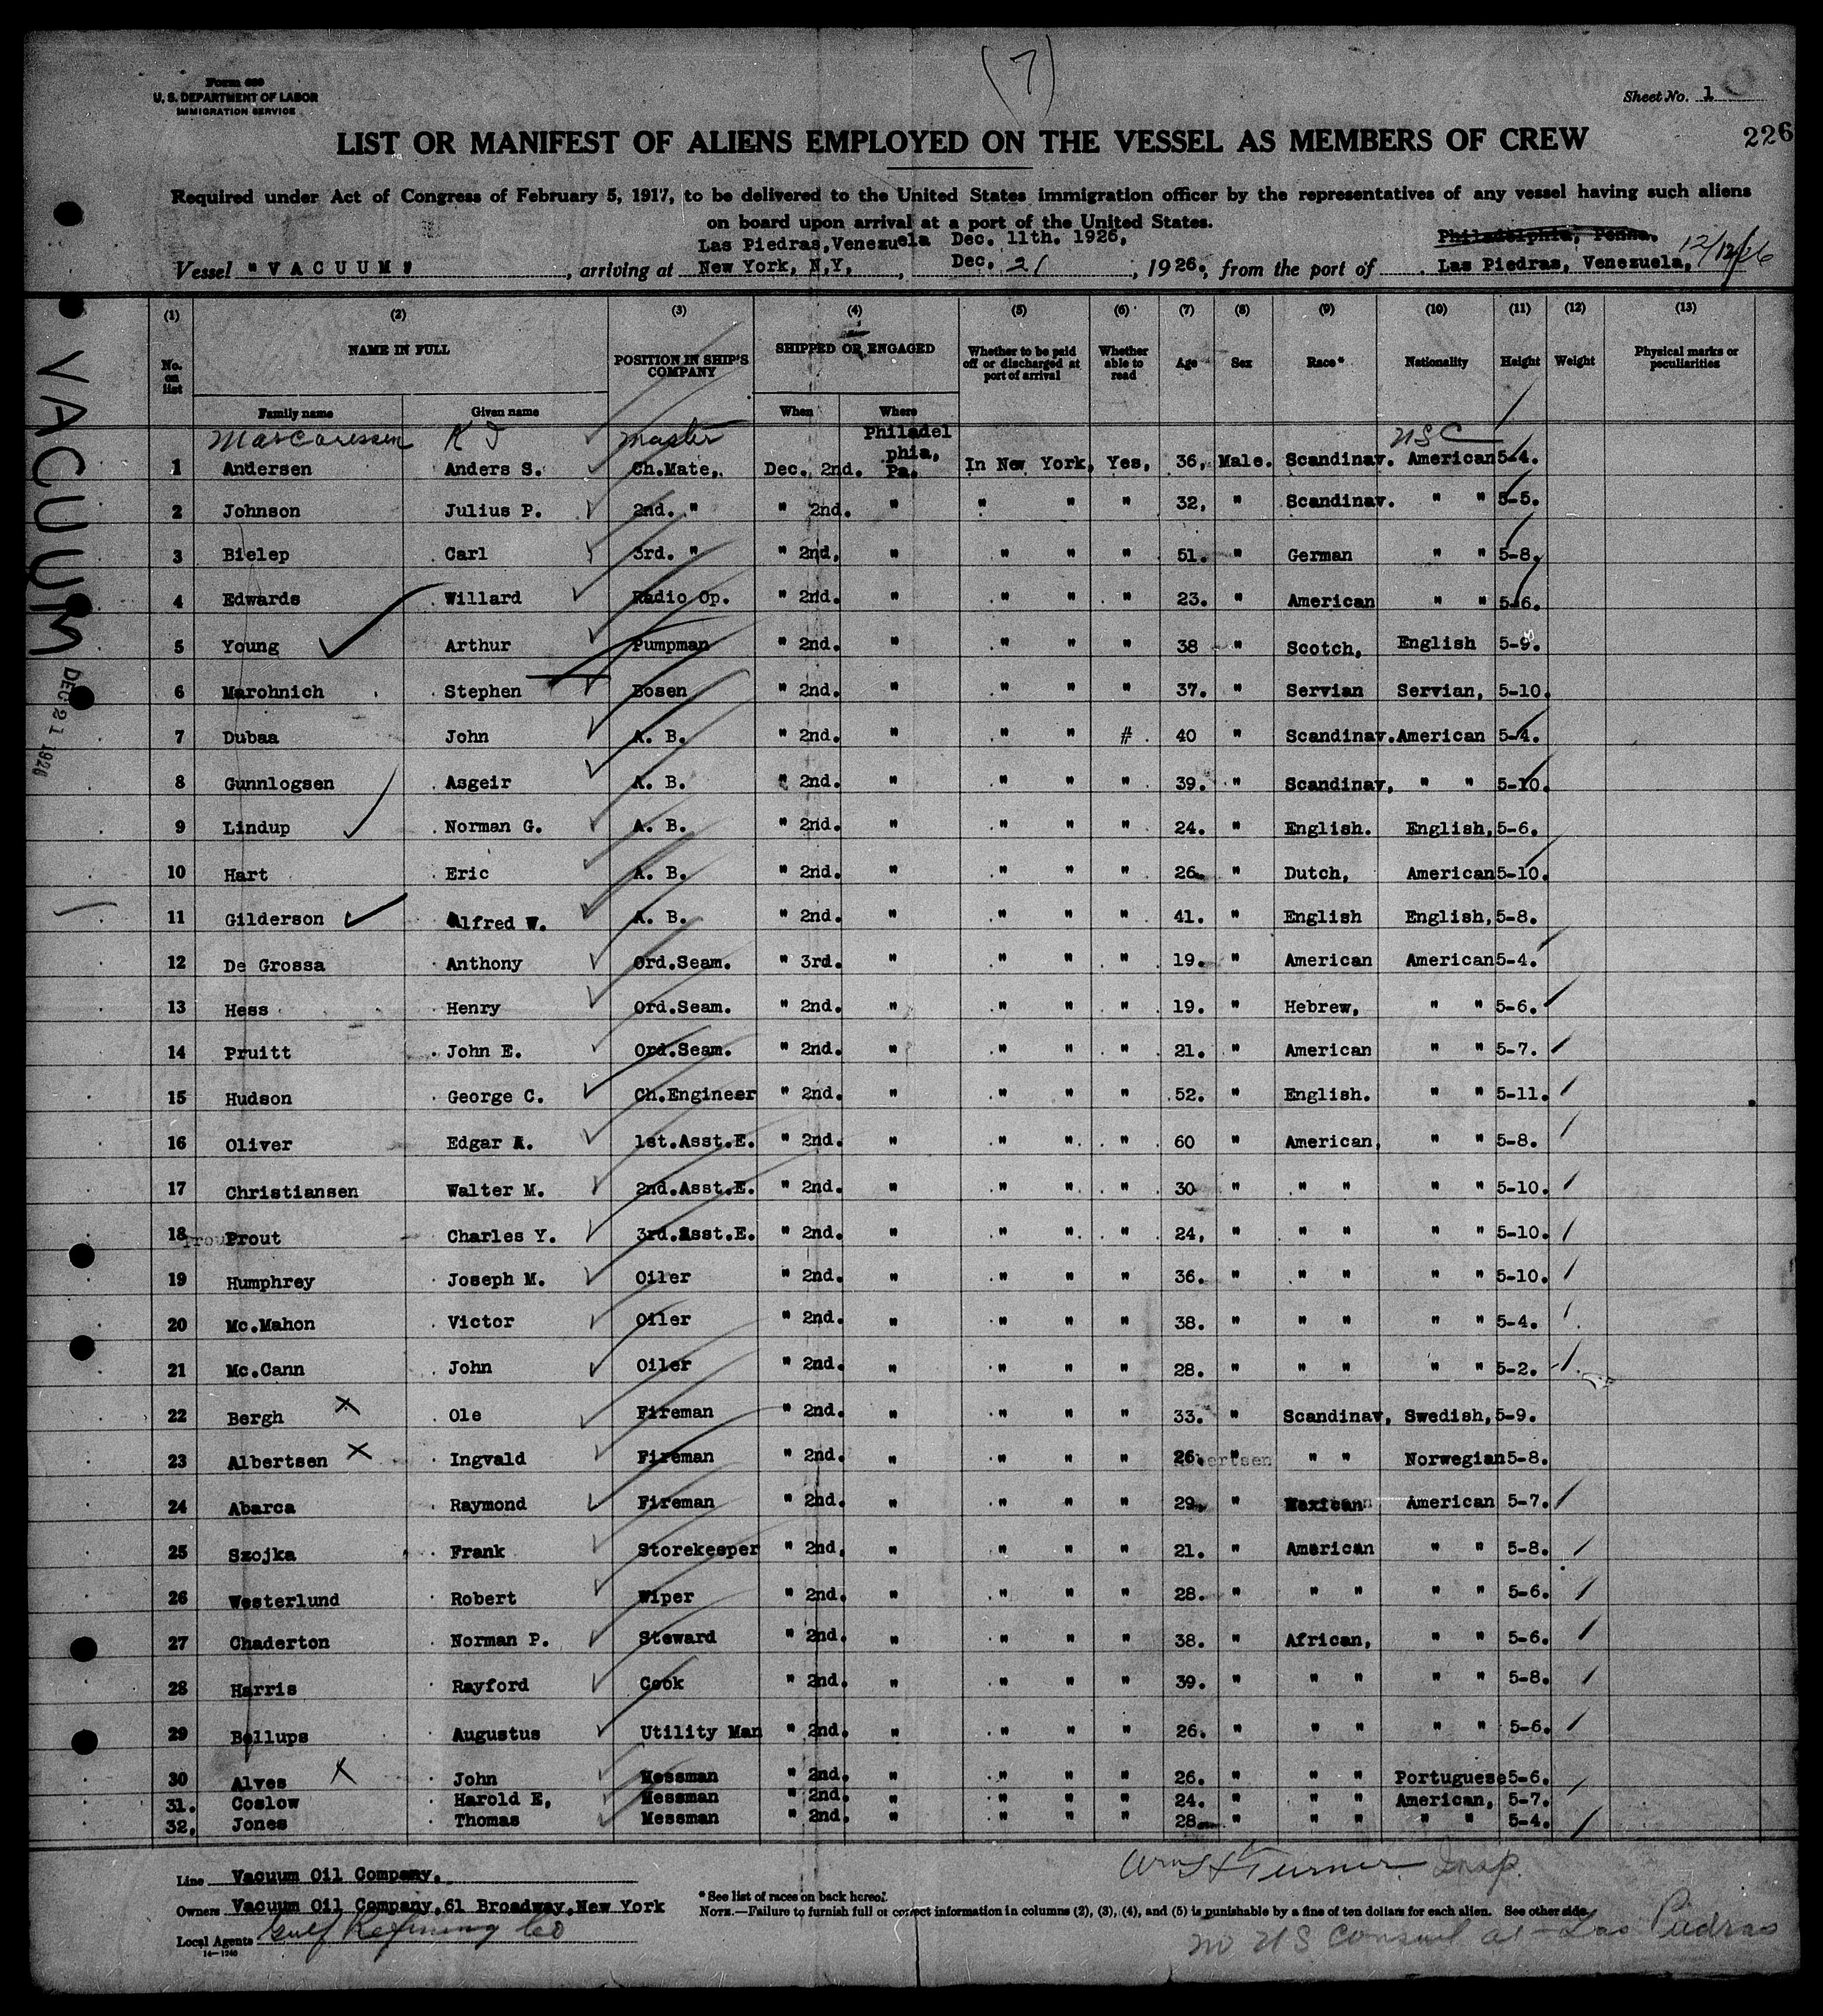 (7)
Form 680
U. S. DEPARTMENT OF LABOR
IMMIGRATION SERVICE
Sheet No. 1
226
LIST OR MANIFEST OF ALIENS EMPLOYED ON THE VESSEL AS MEMBERS OF CREW
Required under Act of Congress of February 5, 1917, to be delivered to the United States immigration officer by the representatives of any vessel having such aliens
on board upon arrival at a port of the United States.
Las Piedras, Venezuela Dec. 11th. 1926, Philadelphia, Penna.
Vessel "VACUUM", arriving at New York, N.Y, Dec. 21, 1926, from the port of Las Piedras, Venezuela,
VACUUM
DEC 21 1926
(1) (2) (3) (4) (5) (6) (7) (8) (9) (10) (11) (12) (13)
No. on list NAME IN FULL POSITION IN SHIP'S COMPANY SHIPPED OR ENGAGED Whether to be paid off or discharged at port of arrival Whether able to read Age Sex Race* Nationality Height Weight Physical marks or peculiarities
Family name Given name When Where
K J Master USC
1 Andersen Anders S. Ch.Mate,. Dec. 2nd. Philadelphia, Pa. In New York, Yes, 36, Male. Scandinav. American 5-4.
2 Johnson Julius P. 2nd. " " 2nd. " " " " 32, " Scandinav. " " 5-5.
3 Bielep Carl 3rd. " " 2nd, " " " " 51. " German " " 5-8.
4 Edwards Willard Radio Op. " 2nd. " " " " 23. " American " " 5-6.
5 Young Arthur Pumpman " 2nd. " " " " 38 " Scotch, English 5-9.
6 Marohnich Stephen Bosen " 2nd. " " " " 37. " Servian Servian, 5-10.
7 Dubaa John A. B. " 2nd. " " " # 40 " Scandinav. American 5-4.
8 Gunnlogsen Asgeir A. B. " 2nd. " " " " 39. " Scandinav, " " 5-10.
9 Lindup Norman G. A. B. " 2nd. " " " " 24. " English. English, 5-6.
10 Hart Eric A. B. " 2nd. " " " " 26. " Dutch, American 5-10.
11 Gilderson Alfred W. A. B. " 2nd. " " " " 41. " English English, 5-8.
12 De Grossa Anthony Ord.Seam. " 3rd. " " " " 19. " American American 5-4.
13 Hess Henry Ord.Seam. " 2nd. " " " " 19. " Hebrew, " " 5-6.
14 Pruitt John E. Ord.Seam. " 2nd. " " " " 21. " American " " 5-7.
15 Hudson George C. Ch.Engineer " 2nd. " " " " 52. " English. " " 5-11.
16 Oliver Edgar A. 1st.Asst.E. " 2nd. " " " " 60 " American, " " 5-8.
17 Christiansen Walter M. 2nd.Asst.E. " 2nd. " " " " 30 " " " " " 5-10.
18 Prout Charles Y. 3rd.Asst.E. " 2nd. " " " " 24, " " " " " 5-10.
19 Humphrey Joseph M. Oiler " 2nd. " " " " 36. " " " " " 5-10.
20 Mc.Mahon Victor Oiler " 2nd. " " " " 38. " " " " " 5-4.
21 Mc.Cann John Oiler " 2nd. " " " " 28. " " " " " 5-2.
22 Bergh Ole Fireman " 2nd. " " " " 33. " Scandinav, Swedish, 5-9.
23 Albertsen Ingvald Fireman " 2nd. " " " " 26. " " " Norwegian 5-8.
24 Abarca Raymond Fireman " 2nd. " " " " 29. " Mexican American 5-7.
25 Szojka Frank Storekeeper " 2nd. " " " " 21. " American " " 5-8.
26 Westerlund Robert Wiper " 2nd. " " " " 28. " " " " " 5-6.
27 Chaderton Norman P. Steward " 2nd. " " " " 38. " African, " " 5-6.
28 Harris Rayford Cook " 2nd. " " " " 39. " " " " " 5-8.
29 Bellups Augustus Utility Man " 2nd. " " " " 26. " " " " " 5-6.
30 Alves John Messman " 2nd. " " " " 26. " " " Portuguese 5-6.
31. Coslow Harold E, Messman " 2nd. " " " " 24. " " " American, 5-7.
32. Jones Thomas Messman " 2nd. " " " " 28. " " " " " 5-4.
Line Vacuum Oil Company.
Wm Turner Insp.
Owners Vacuum Oil Company, 61 Broadway, New York
* See list of races on back hereof.
NOTE.—Failure to furnish full or correct information in columns (2), (3), (4), and (5) is punishable by a fine of ten dollars for each alien. See other side.
Local Agents Gulf Refining Co
14—1240
no US Consul at Las Piedras